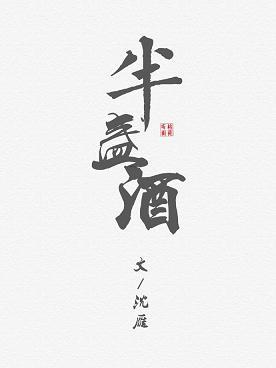 半盏酒
文/沈雁